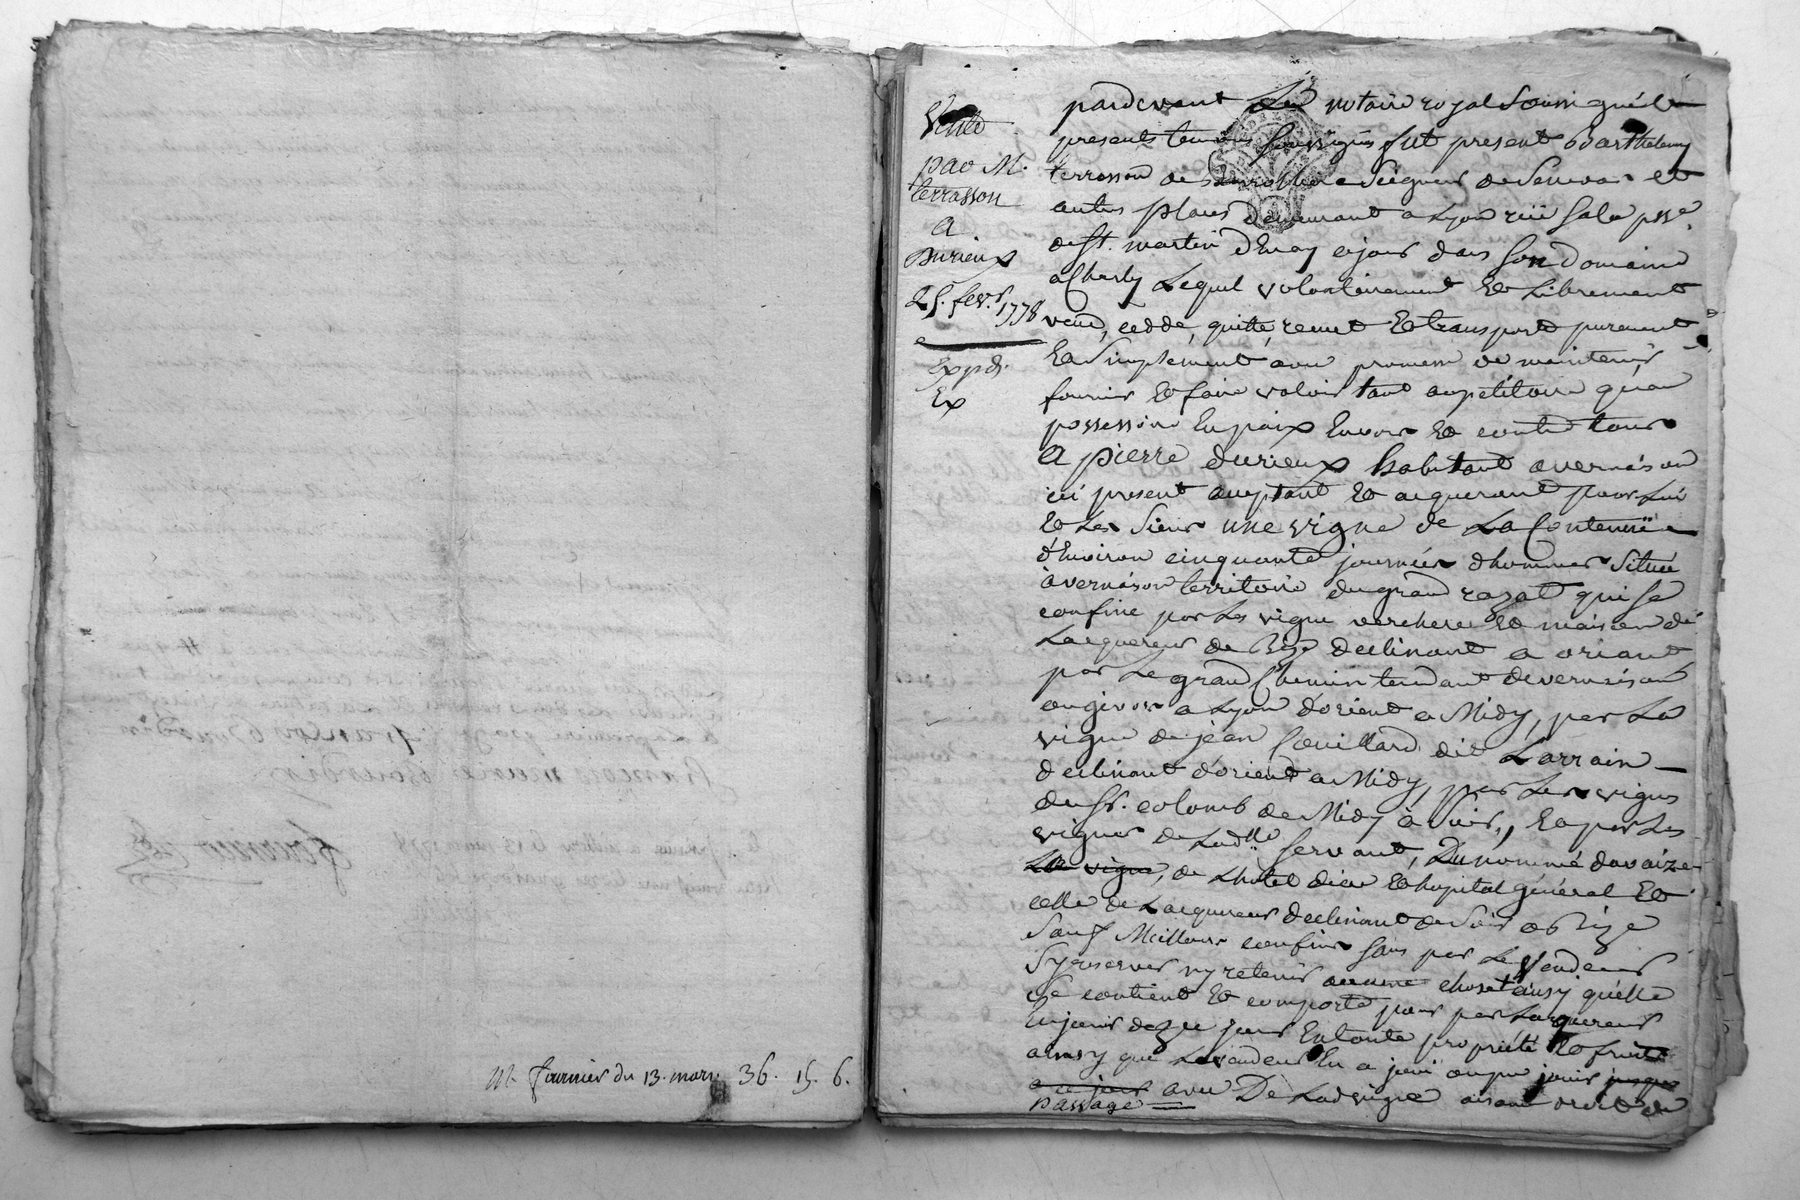 M. fournier du 13. mars 36. 15. 6.
Vente
par M.
terrasson
A
Durieux
25. fevr. 1778
Exped.
Ex
pardevant Le notaire royal Soussigné Et
presents temoins soussignés fut present Barthelemy
terrasson de Seigneur de Senevas et
autres places demeurant a Lyon rue Sala psse
de St. martin d'Enay a jour dans son Domaine
a Charly Lequel volontairement et Librement
vend, cedde, quitte, remet et transporte purement
Et Simplement avec promesse de maintenir
fournir et faire valoir tant au petitoire qu'au
possessoire En paix Envers et contre tous
A pierre durieux habitant a vernaison
ici present acceptant et acquerant pour Lui
et Les Siens une vigne de La Contenüe
d'Environ cinquante journées d'hommes Située
à vernaison territoire du grand razat qui se
confine par Les vigne verchere et maison de
Lacquereur de Bize declinant a oriant
par Le grand Chemin tendant de vernaison
ou givors a Lyon d'orient a Midy, par La
vigne de jean Couillard dit Larrain
declinant d'orient a Midy, par Les vignes
du Sr. colomb de Midy à Soir, Et par Les
vignes de Ladlle Servant, Du nommé davaize
La vigne, de Lhotel dieu et hopital général et
celle de Lacquereur declinant de Soir a Bize
Sauf Meilleurs confins sans par Le Vendeur
Sy reserver ny retenir aucune chose ainsy qu'elle
Se contient et comporte pour par Lacquereur
En jouir dez ce jour En toute proprieté et fruits
ainsy que Le vendeur En a joui ou pu jouir jusques
a ce jour avec De Ladvigne aisance droit de
passage